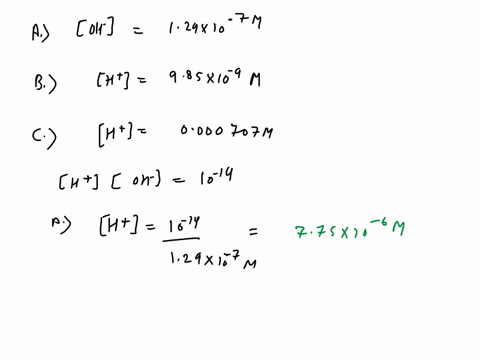 A.) [OH-] = 1.29x10^-7 M
B.) [H+] = 9.85x10^-9 M
C.) [H+] = 0.000707M
[H+] [OH-] = 10^-14
A.) [H+] = 10^-14 / 1.29x10^-7 M = 7.75x10^-6 M